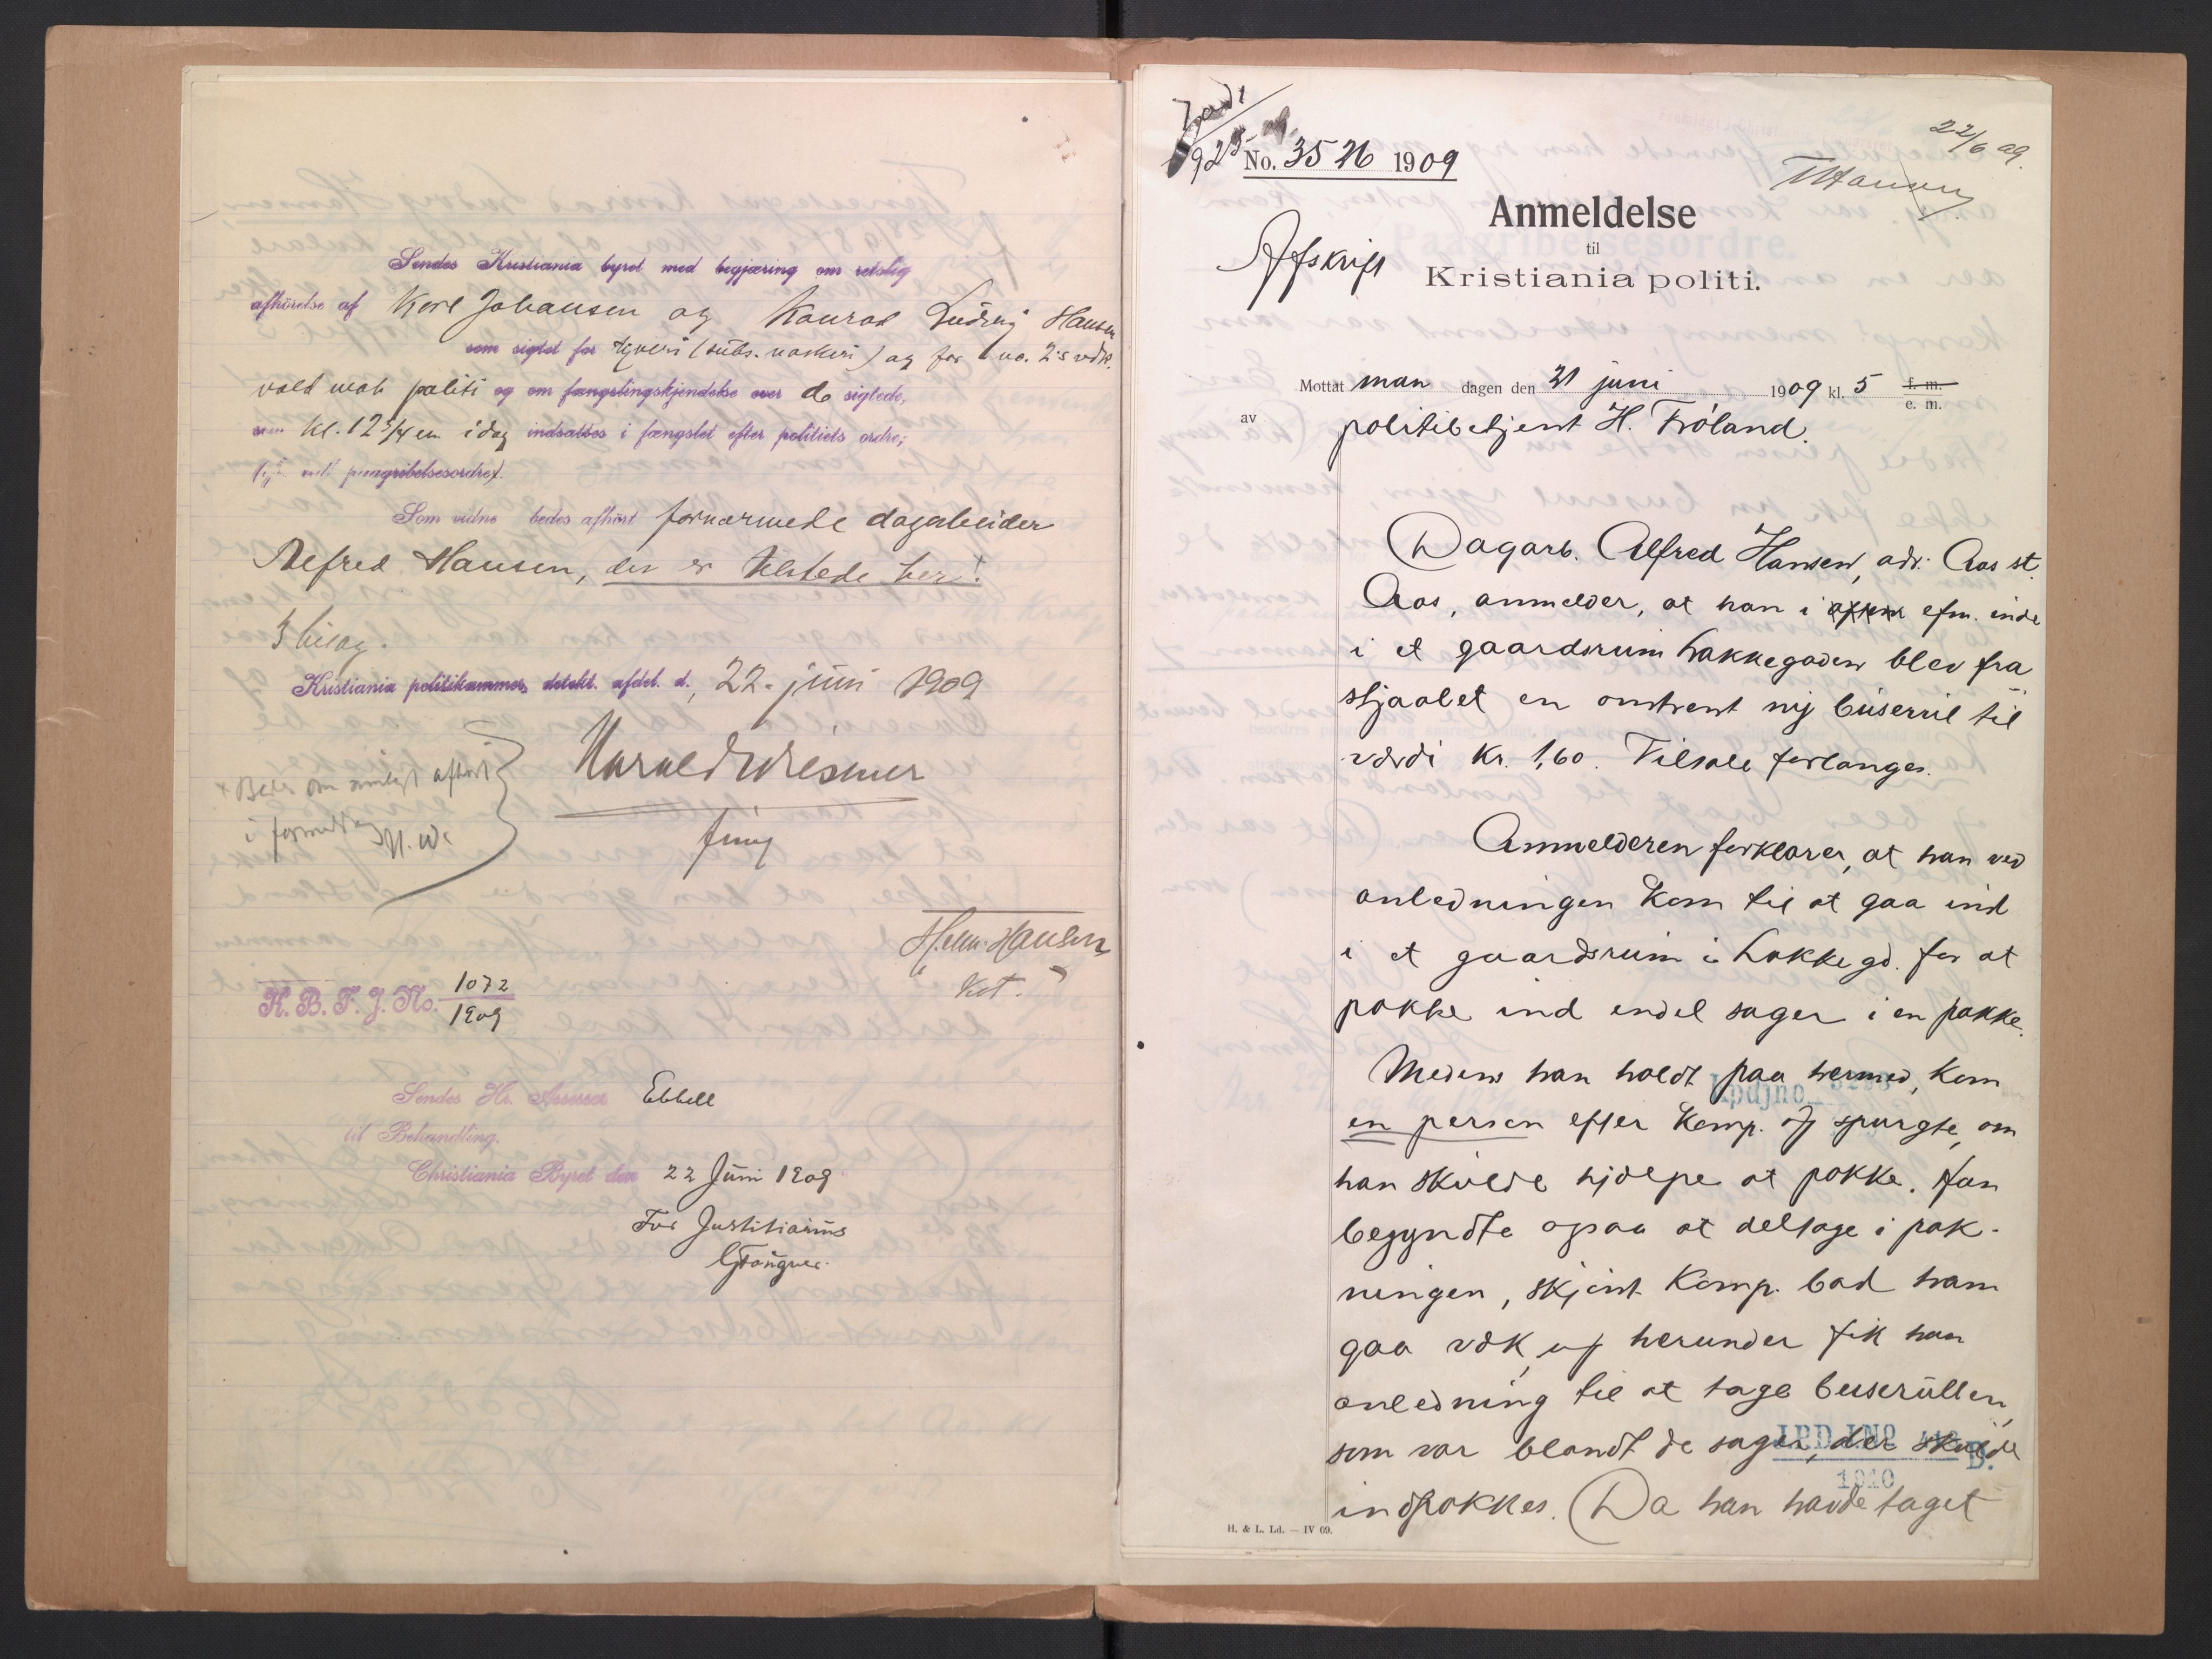 Sendes Kristiania byret med begjæring om retslig
afhörelse af Karl Johansen og Konrad Ludvig Hansen
som sigtet for tyveri (subs. naskeri) og for no. 2's vedk.
vold mod politi og om fængslingskjendelse over de sigtede,
som kl. 12 3/4 em idag indsattes i fængslet efter politiets ordre;
paagribelsesordre).
Som vidne bedes afhört fornærmede dagarbeider
Alfred Hansen, der er tilstede her.+
3 bilag.
Kristiania politikammer, detekt. afdel. d. 22. juni 1909
Harald
+ Bedes om muligt afhört
i formiddag
fung
Hansen
K. B. F. J. No. 1072
1909
Sendes Hr. Assessor Ebbell
til Behandling.
Christiania Byret den 22 Juni 1909
For Justitiarius
925
No. 3526 1909
22/6 09.
THansen
Anmeldelse
til
Kristiania politi.
Afskrift
Mottat man dagen den 21 juni 1909 kl. 5 f. m.
e. m.
av politibetjent H. Fröland.
Dagarb. Alfred Hansen, adr. Aas st.
Aas, anmelder, at han i efm. inde
i et gaardsrum Lakkegaden blev fra
stjaalet en omtrent ny buserul til
værdi kr. 1,60. Tiltale forlanges.
Anmelderen forklarer, at han ved
anledningen kom til at gaa ind
i et gaardsrum i Lakkegd. for at
pakke ind endel sager i en pakke.
Medens han holdt paa hermed, kom
en person efter komp. og spurgte, om
han skulde hjælpe at pakke. Han
begyndte ogsaa at deltage i pak-
ningen, skjönt komp. bad ham
gaa væk, og herunder fik han
anledning til at tage buserullen,
som var blandt de sager, der skulde
indpakkes. (Da han havde taget
1910
B.
H. & L. Ld. — IV 09.